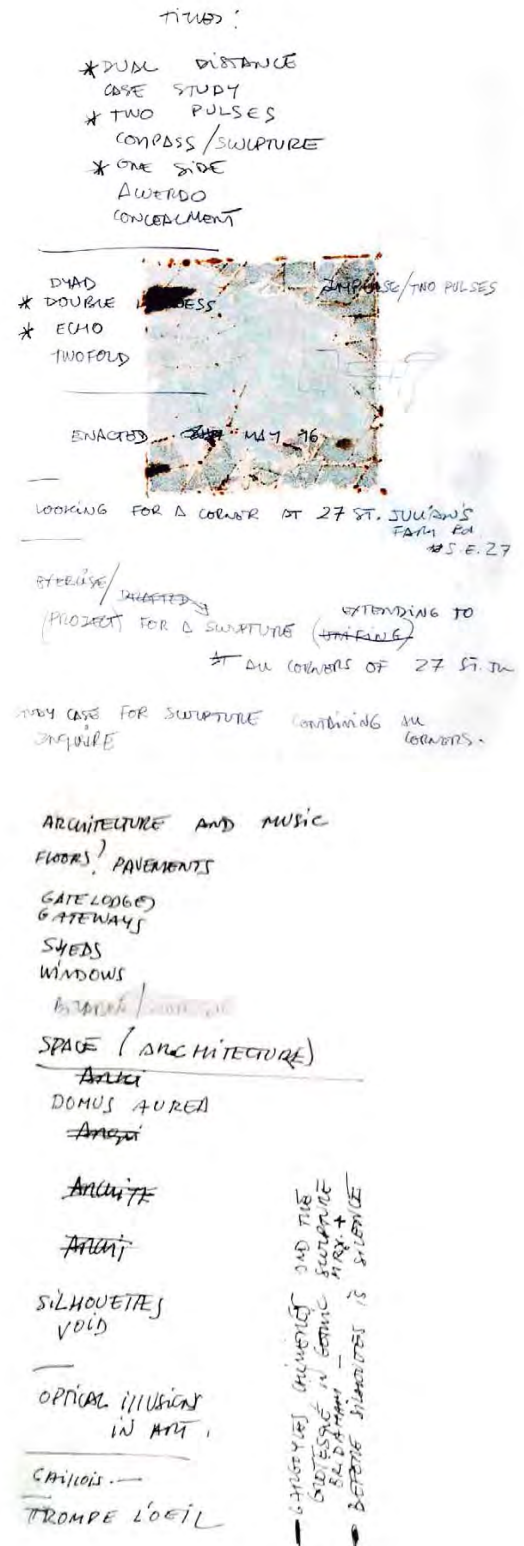 TITLES:
* DUAL DISTANCE
CASE STUDY
* TWO PULSES
COMPASS/SCULPTURE
* ONE SIDE
ACUERDO
CONCEALMENT
DYAD
IMPULSE/TWO PULSES
* DOUBLE
* ECHO
TWOFOLD
ENACTED MAY 16
LOOKING FOR A CORNER AT 27 ST. JULIAN'S
FARM Rd.
S.E. 27
EXERCISE/
(PROJECT) FOR A SCULPTURE (UNIFING) EXTENDING TO
AT ALL CORNERS OF 27 ST. JU
STUDY CASE FOR SCULPTURE CONTAINING ALL
CORNERS.
ENQUIRE
ARCHITECTURE AND MUSIC
FLOORS? PAVEMENTS
GATE LODGES
GATEWAYS
SHEDS
WINDOWS
SPACE (ARCHITECTURE)
DOMUS AUREA
ARCHITE
ARCHI
SILHOUETTES
VOID
OPTICAL ILLUSIONS
IN ART.
CAILLOIS.—
TROMPE L'OEIL
— GARGOYLES CHIMERES AND THE
GROTESQUE IN GOTHIC SCULPTURE
BRIDAHAM —
— BEFORE SILHOUTTES IS SILENCE